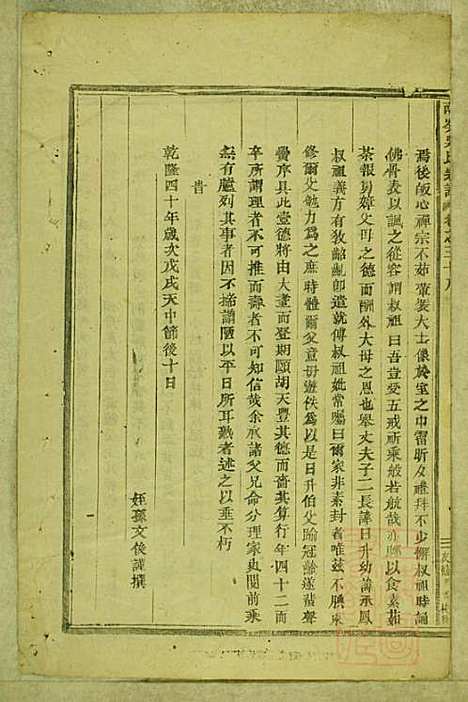 焉後皈心禪宗不茹葷裝大士像於室之中霤昕夕禮拜不少懈叔祖時誦
佛骨表以諷之從容謂叔祖曰吾豈愛五戒祈乘般若航哉亦聊以食素茹
茶報男嫜父母之德而酬外大母之恩也舉丈夫子二長諱日升幼諱承鳳
叔祖義方有教齠齔卽遣就傅叔祖妣常囑曰爾家非素封者唯兹不腆來
修爾父勉力爲之庶時體爾父意毋遊佚爲以是日升伯父踰冠諭遂蜚聲
黌序具此壼德將由大耋而登期頤胡天豐其德而嗇其算行年四十二而
卒所謂理者不可推而壽者不可知信哉余承諸父兄命分理家史閱前乘
無有臚列其事者因不揣譾陋以平日所耳熟者述之以垂不朽
旹
乾隆四十年歲次戊戌天中節後十日
姪孫文俊謹撰